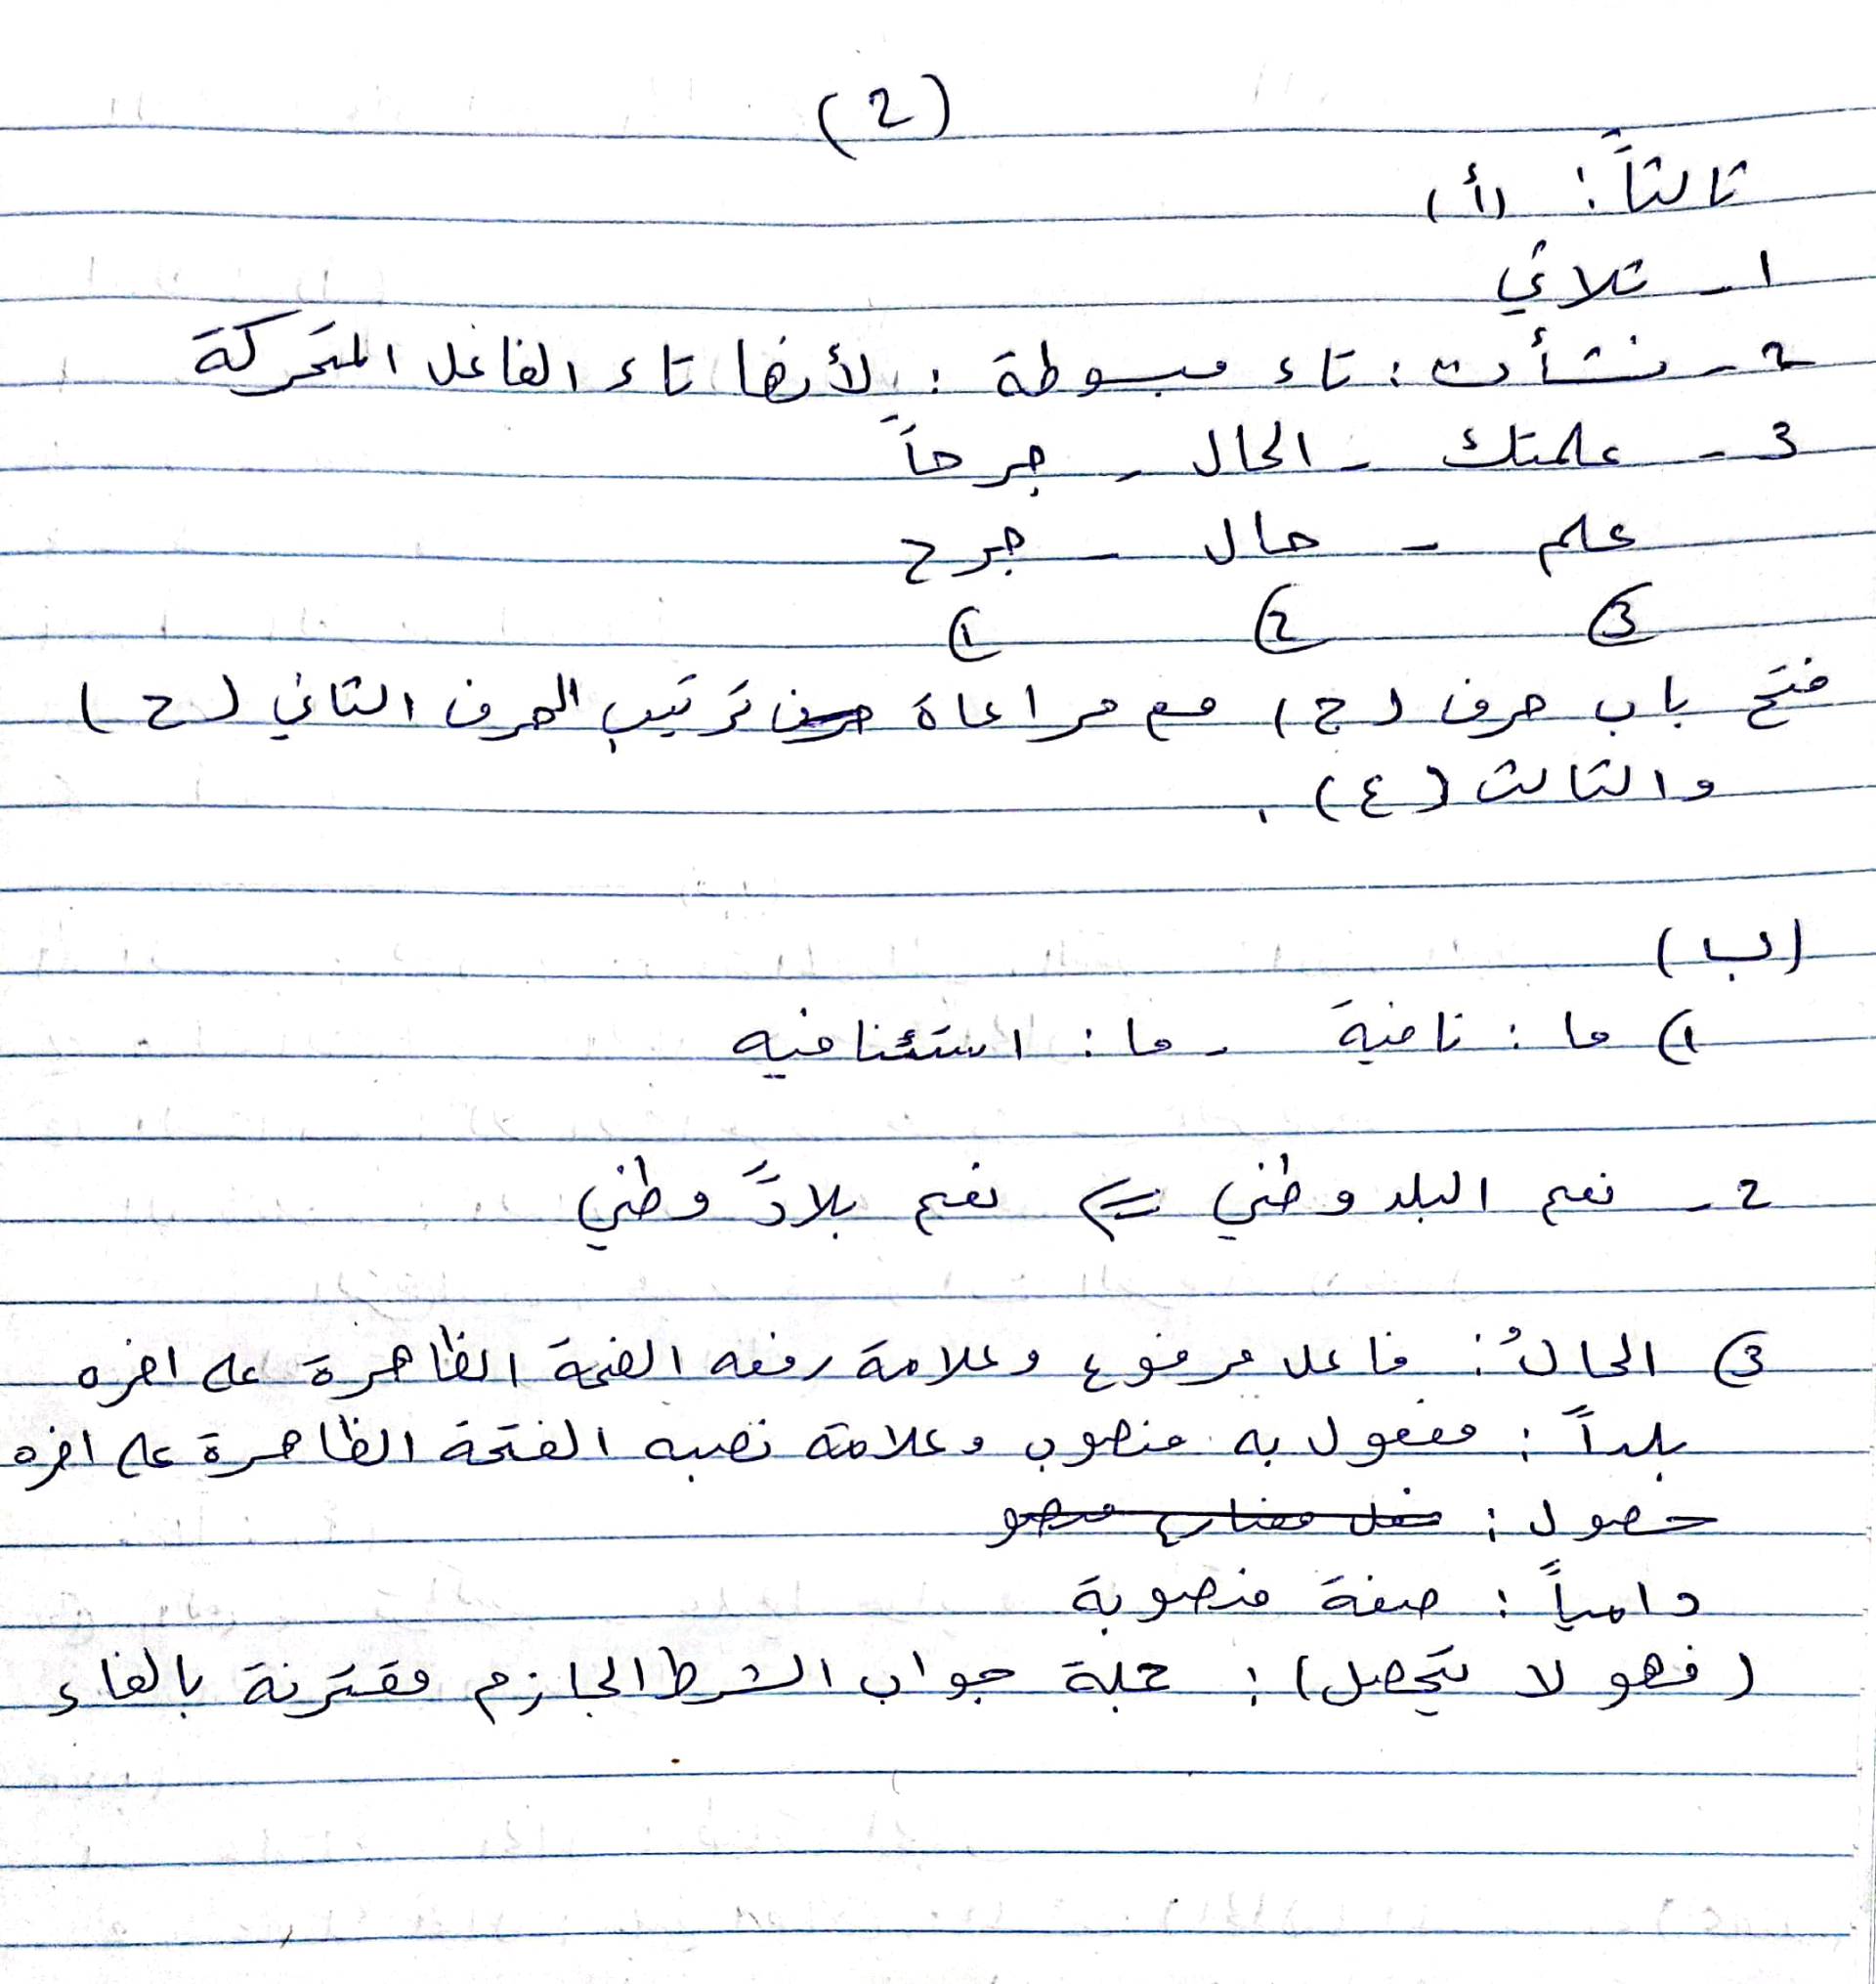 (2)
ثالثاً: (أ)
1- ثلاثي
2- نشأت: تاء مبسوطة: لأنها تاء الفاعل المتحركة
3- علمتك - الحال - جرحاً
علم - حال - جرح
3 2 1
فتح باب حرف (ج) مع مراعاة ترتيب الحرف الثاني (ح)
والثالث (ع).
(ب)
1) ما: نافية - ما: استئنافيه
2- نعم البلد وطني <= نعم بلاداً وطني
3) الحالُ: فاعل مرفوع وعلامة رفعه الضمة الظاهرة على اخره
بلداً: مفعول به منصوب وعلامة نصبه الفتحة الظاهرة على اخره
حصول:
دامياً: صفة منصوبة
(فهو لا يتحصل): جملة جواب الشرط الجازم مقترنة بالفاء